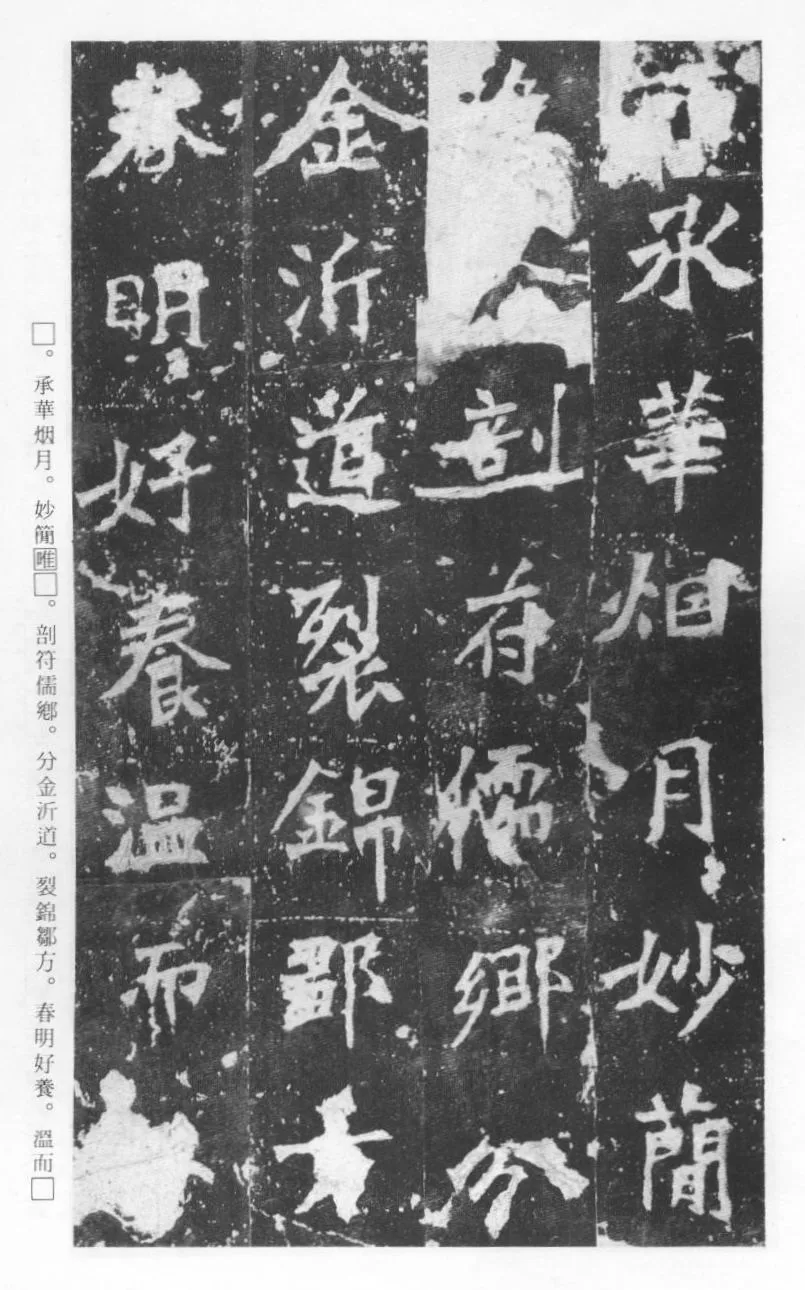 承華烟月妙簡
剖符儒鄉分
金沂道裂錦鄒方
春明好養溫而
□。承華烟月。妙簡唯□。剖符儒鄉。分金沂道。裂錦鄒方。春明好養。溫而□